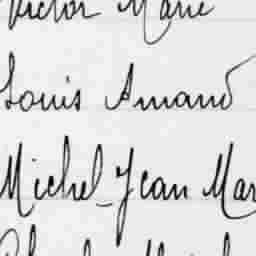 Victor Marie
Louis Amand
Michel Jean Mar